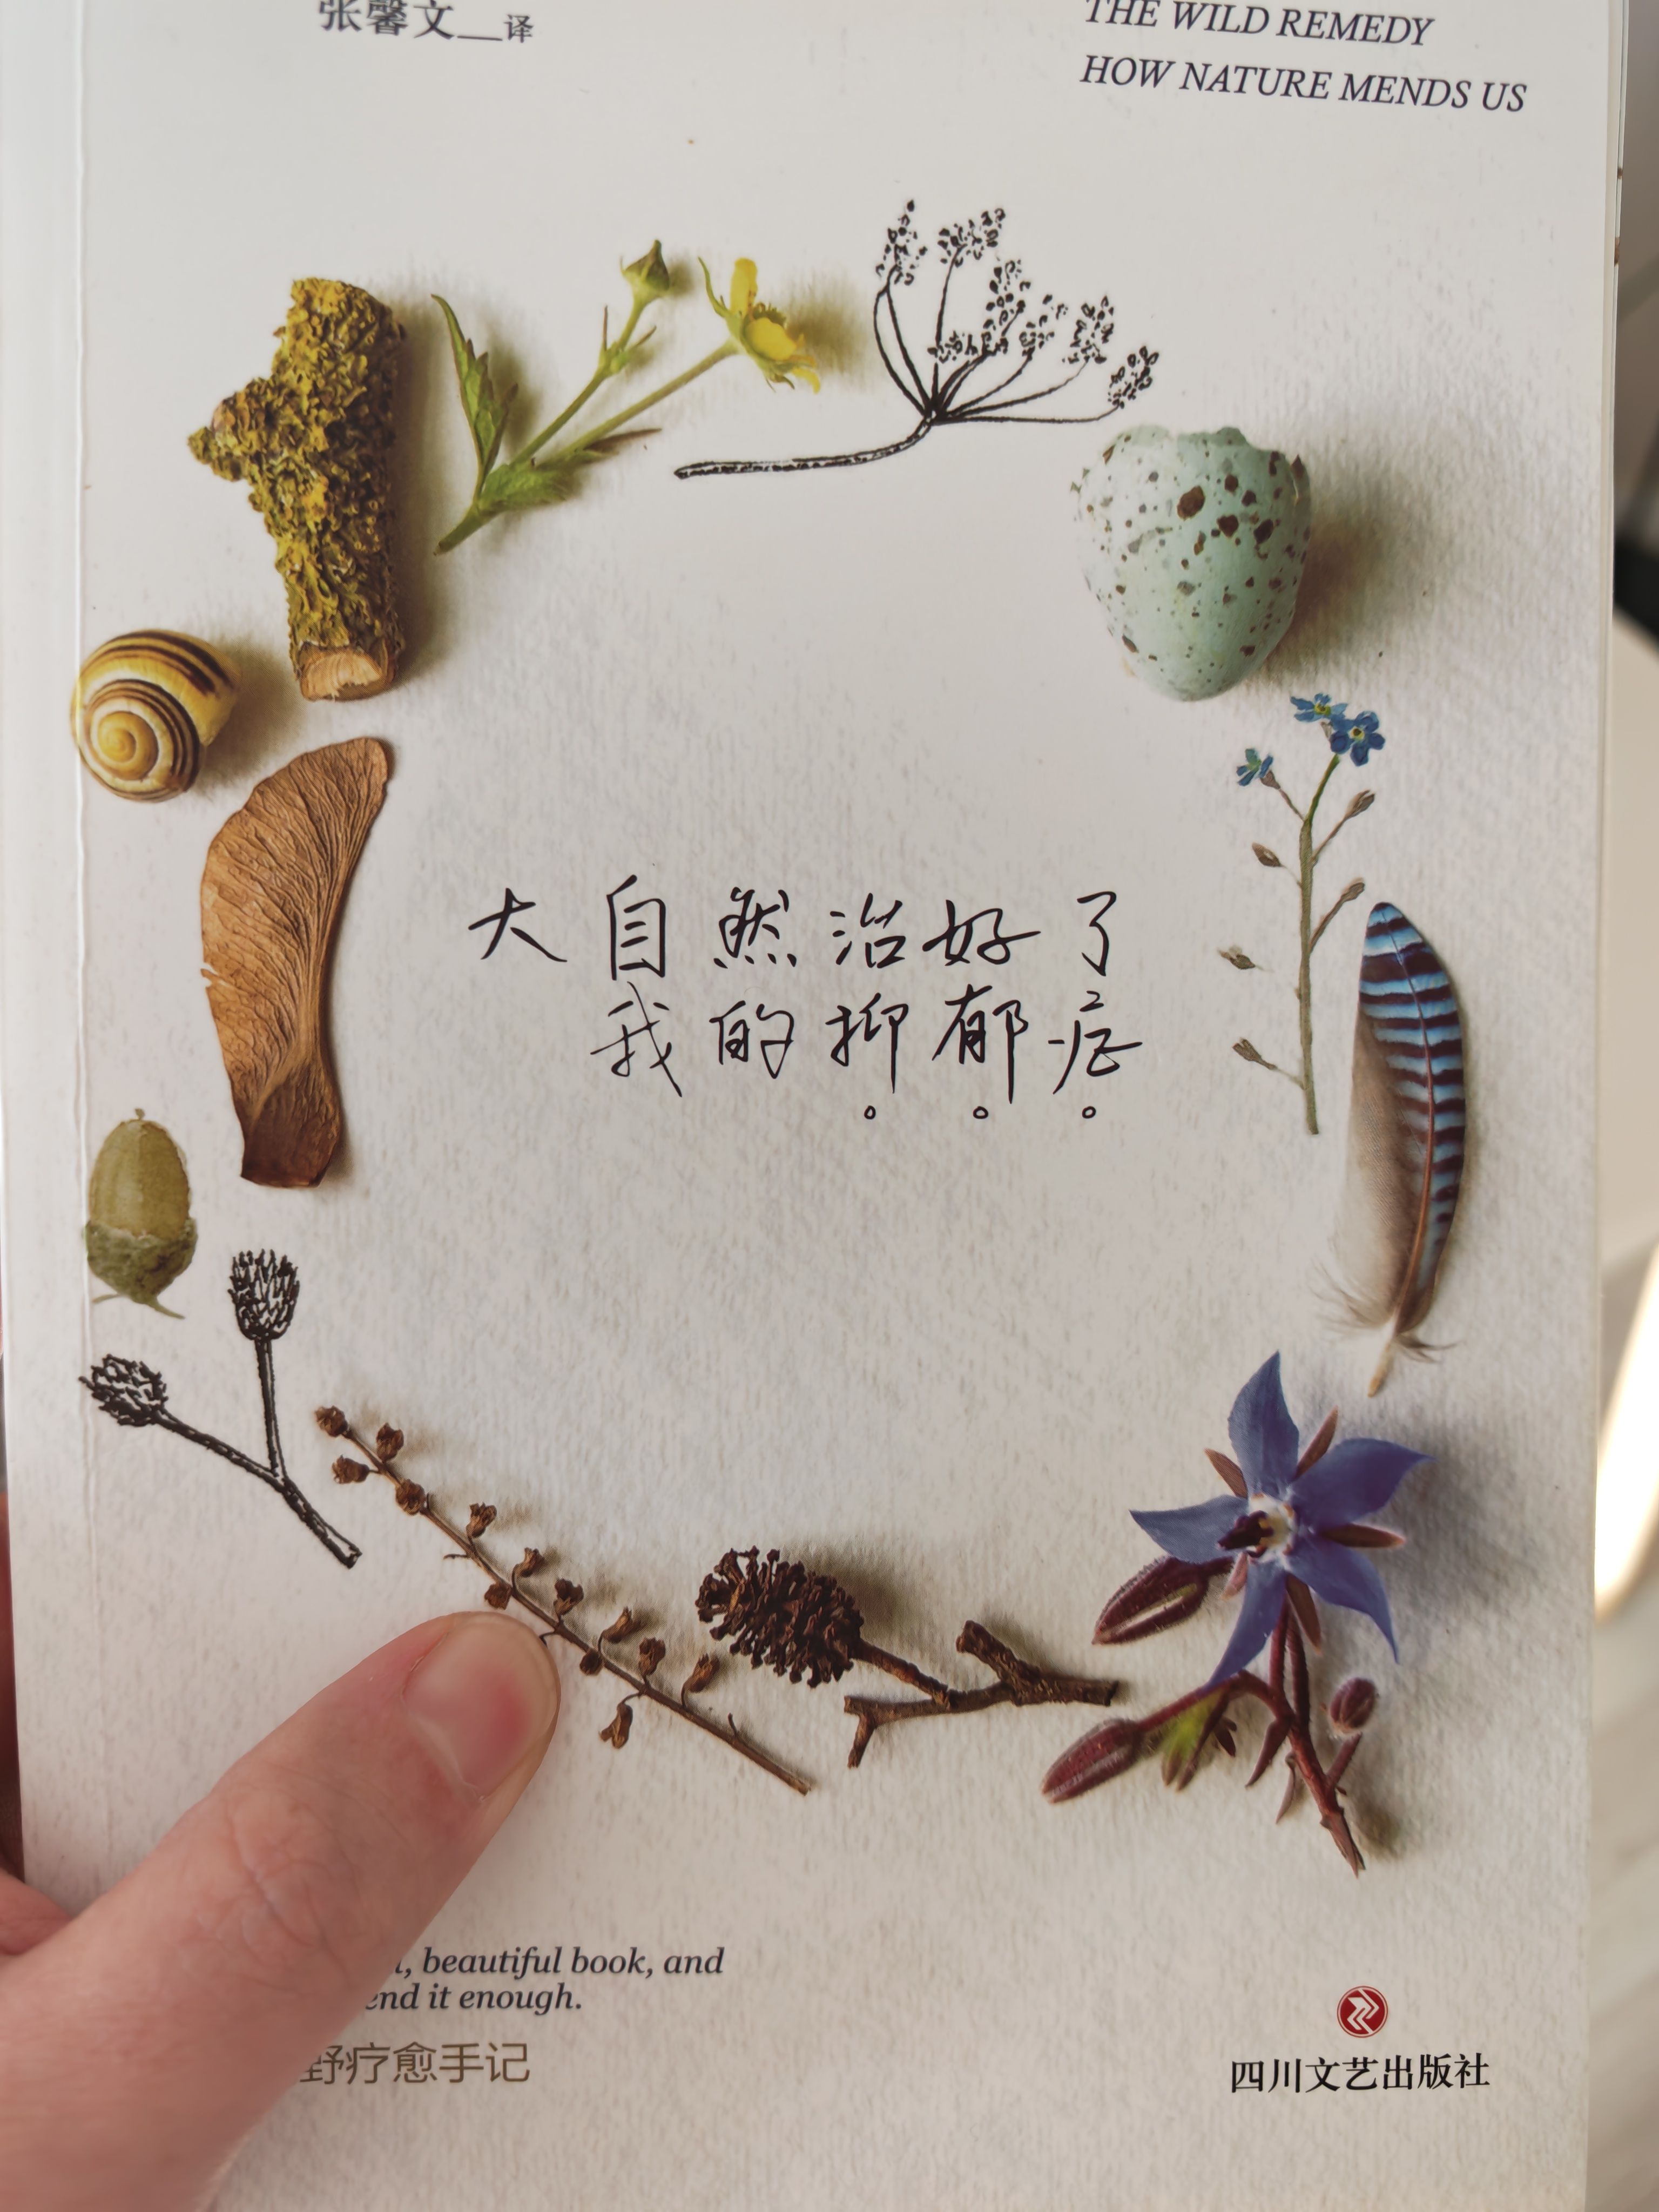 张馨文__译
THE WILD REMEDY
HOW NATURE MENDS US
大自然治好了
我的抑郁症
, beautiful book, and
end it enough.
野疗愈手记
四川文艺出版社